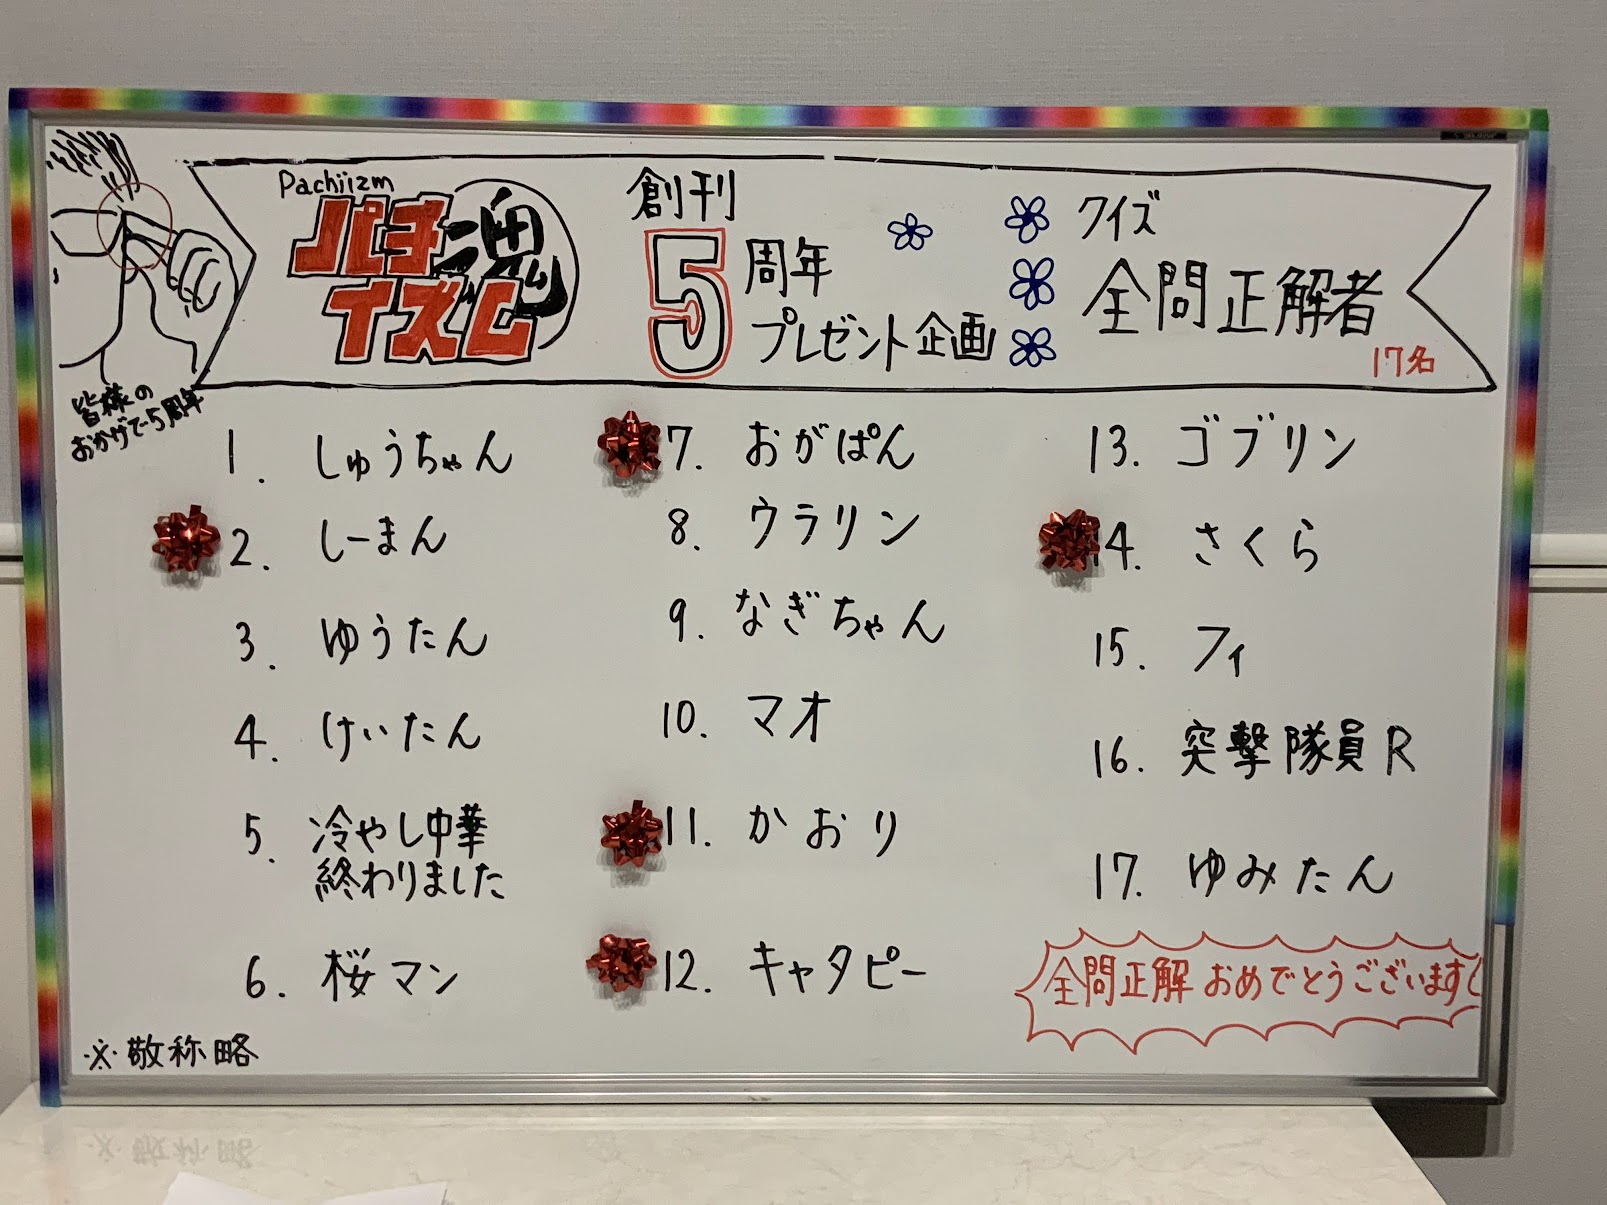 Pachiizm
パチ
イズム
魂
創刊
5周年
プレゼント企画
クイズ
全問正解者
17名
皆様の
おかげで5周年
1. しゅうちゃん
2. しーまん
3. ゆうたん
4. けいたん
5. 冷やし中華
終わりました
6. 桜マン
7. おがぱん
8. ウラリン
9. なぎちゃん
10. マオ
11. かおり
12. キャタピー
13. ゴブリン
14. さくら
15. フィ
16. 突撃隊員R
17. ゆみたん
全問正解 おめでとうございます
※敬称略